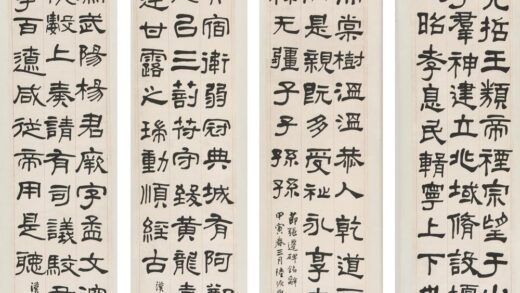 哲王類帝禋宗望于山
羣神建立兆域脩設壇
昭孝息民輯寧上下典
棠樹溫溫恭人乾道
是親既多受祉永享
无疆子子孫孫
節張遷碑銘辭
甲寅春三月陸恢
宿衛弱冠典城有阿鄭
己三剖符守致黃龍嘉
連甘露之瑞動順經古
漢
武陽楊君厥字孟文深
數上奏請有司議駁君
百遼咸從帝用是聽
漢